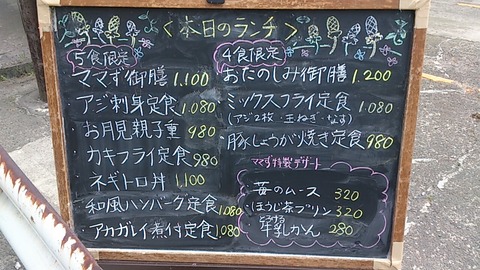 <本日のランチ>
5食限定
ママず御膳 1,100
アジ刺身定食 1,080
お月見親子重 980
カキフライ定食 980
ネギトロ丼 1,100
和風ハンバーグ定食 1,080
アカガレイ煮付定食 1,080
4食限定
おたのしみ御膳 1,200
ミックスフライ定食 1,080
(アジ2枚・玉ねぎ・なす)
豚しょうが焼き定食 980
ママず特製デザート
苺のムース 320
ほうじ茶プリン 320
牛乳かん 280